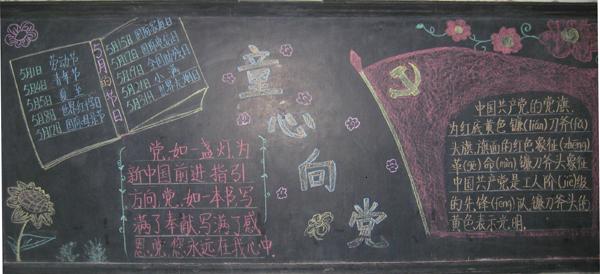 5月1日 劳动节
5月4日 青年节
5月5日 立夏
5月8日 世界红十字日
5月12日 国际护士节
5月的节日
5月15日 国际家庭日
5月17日
5月19日 全国助残日
5月21日 小满
5月31日 世界无烟日
党,如一盏灯,为
新中国前进指引
方向党,如一本书写
满了奉献,写满了感
恩,党,您永远在我心中.
童心向党
中国共产党的党旗
为红底黄色镰(lián)刀斧(fǔ)
头旗,旗面的红色象征(zhēng)
革(gé)命(mìn)镰刀斧头象征
中国共产党是工人阶(jiē)级
的先锋(fōng)队镰刀斧头的
黄色表示光明.